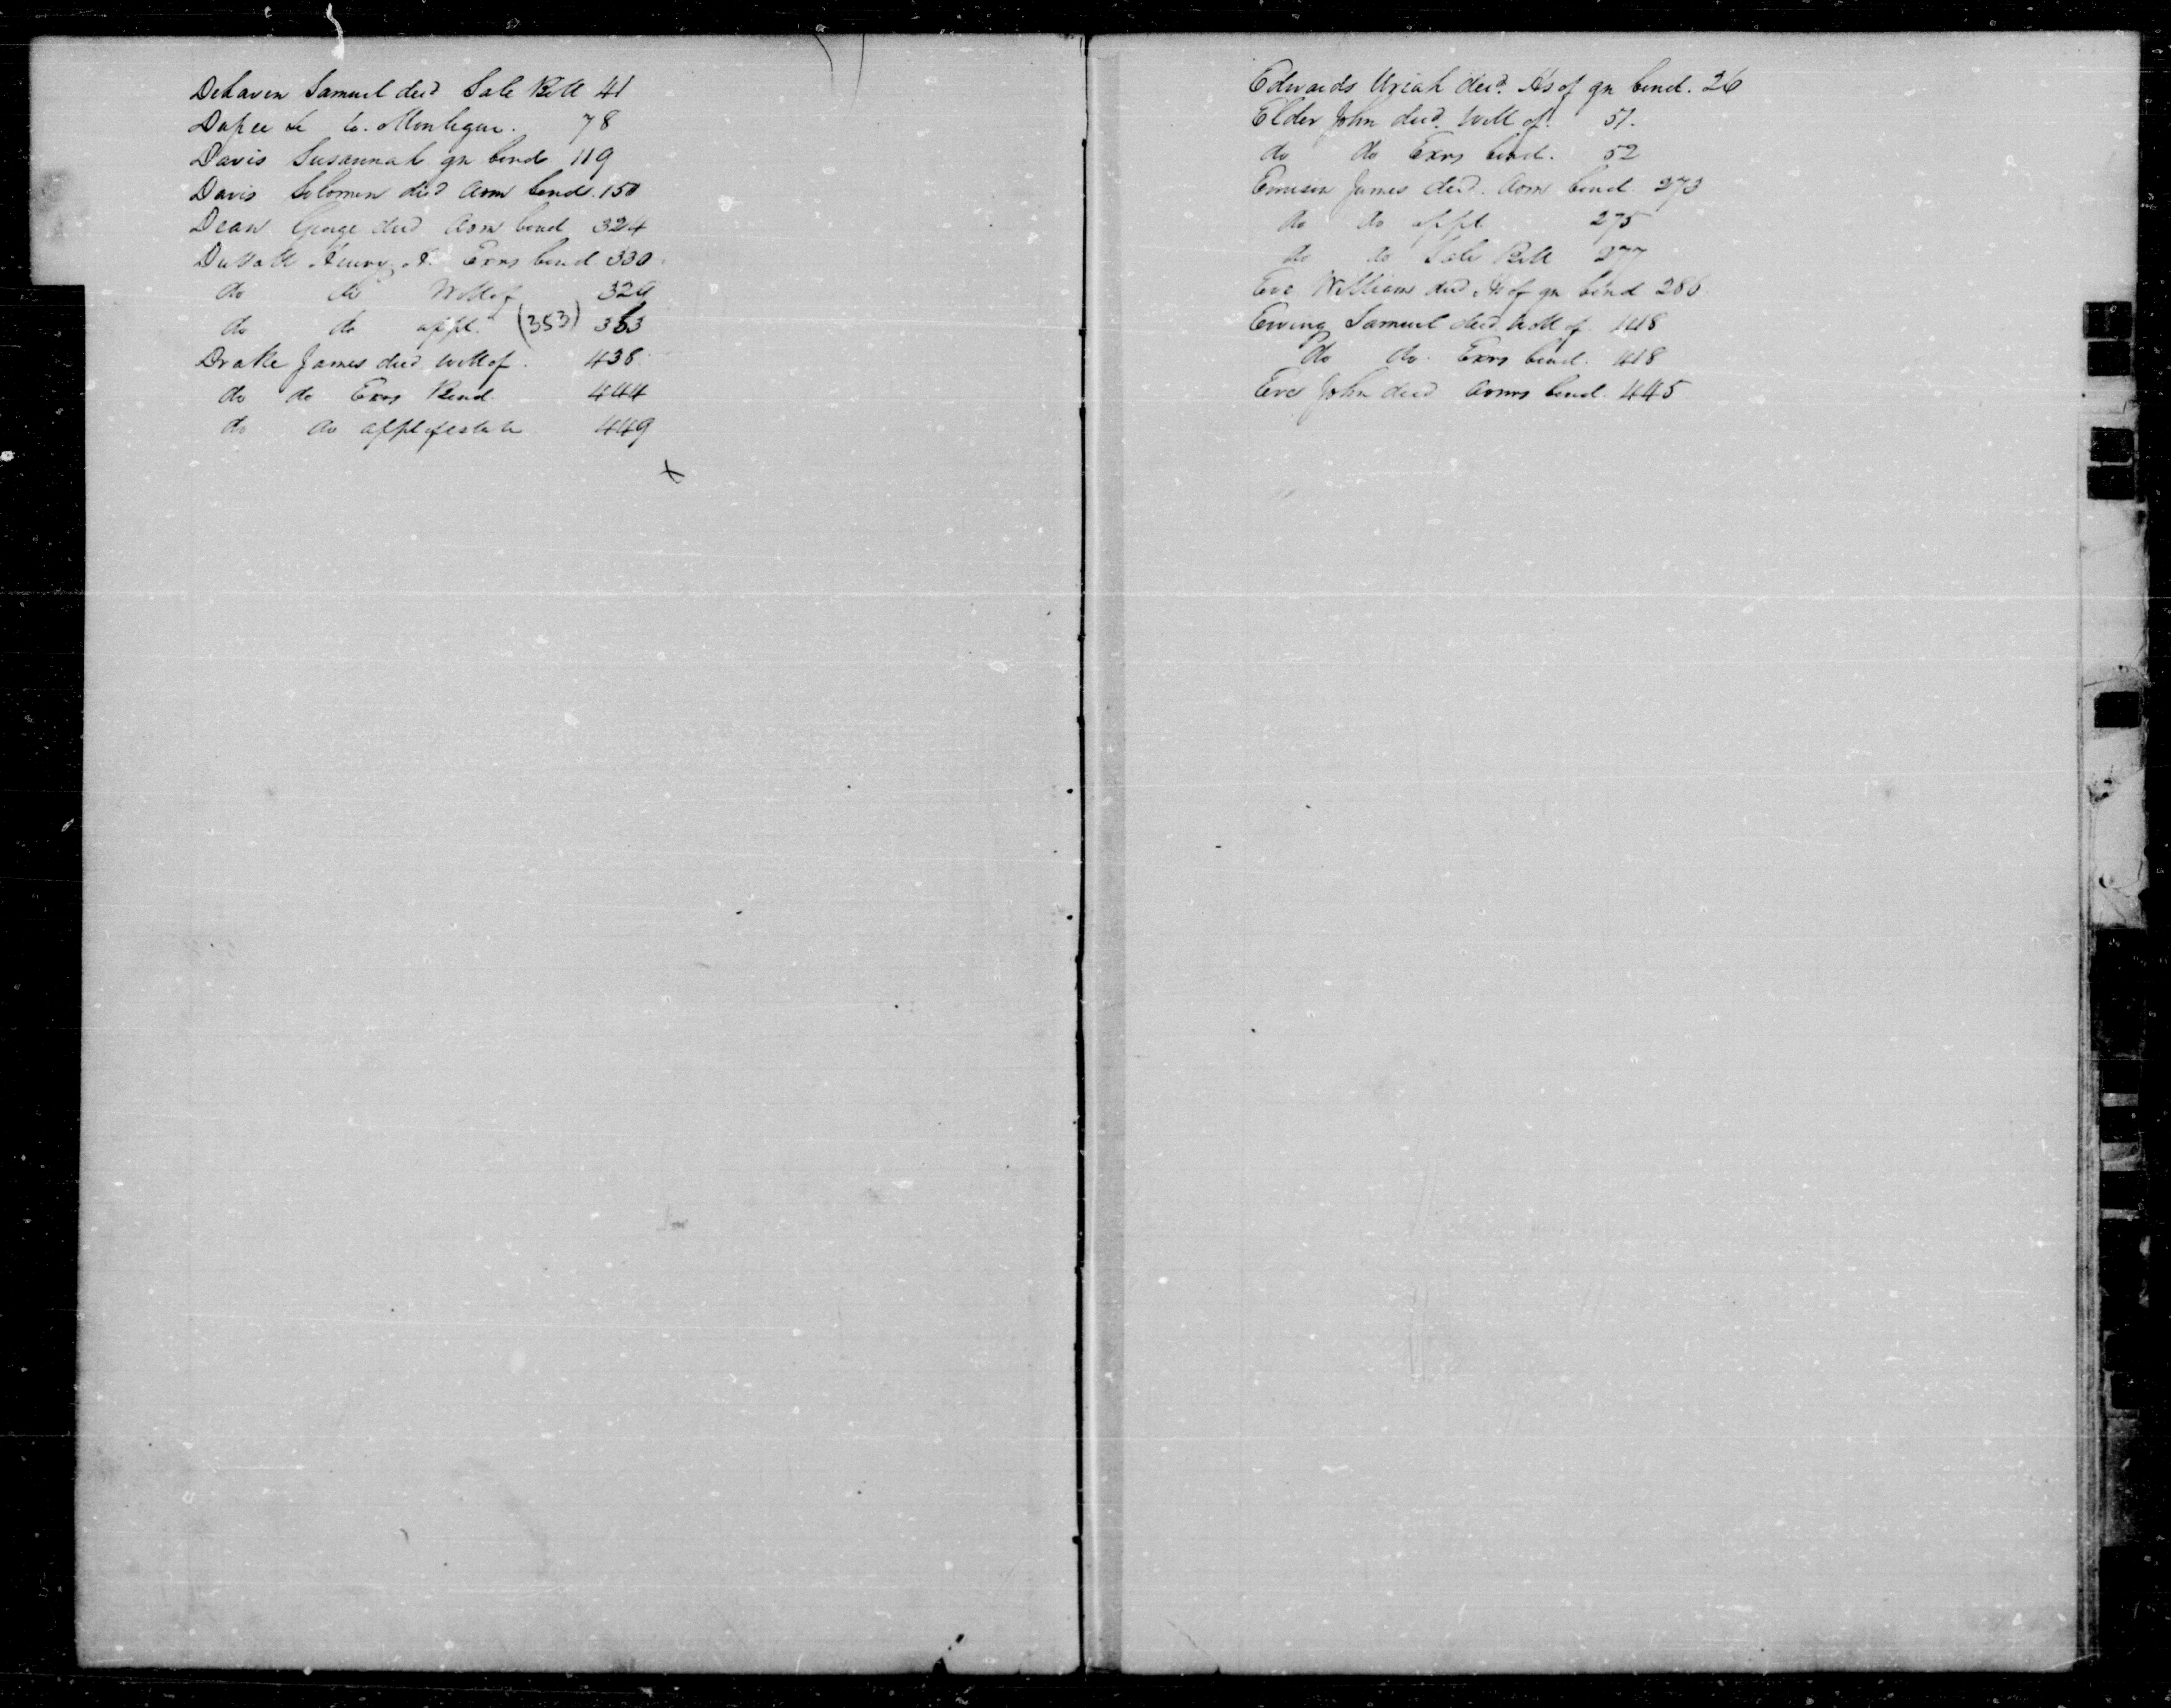 Dehaven Samuel decd Sale Bill 41
Dupee to Montegue. 78
Davis Susannah gn bond 119
Davis Solomon decd Adm bond. 150
Dean George decd Adm bond 324
Duvall Henry Exrs bond 330
do do Will of 329
do do appt. (353) 353
Drake James decd Will of. 438
do do Exrs Bond 444
do do appt of estate 449
x
Edwards Uriah decd. Hs of gn bond. 26
Elder John decd. Will of. 51.
do do Exrs bond. 52
James decd. Adm bond. 273
do do appt 275
do do Sale Bill 277
Eve William decd Hs of gn bond 286
Ewing Samuel decd Will of. 418
do do. Exrs bond. 418
Eve John decd Admrs bond. 445